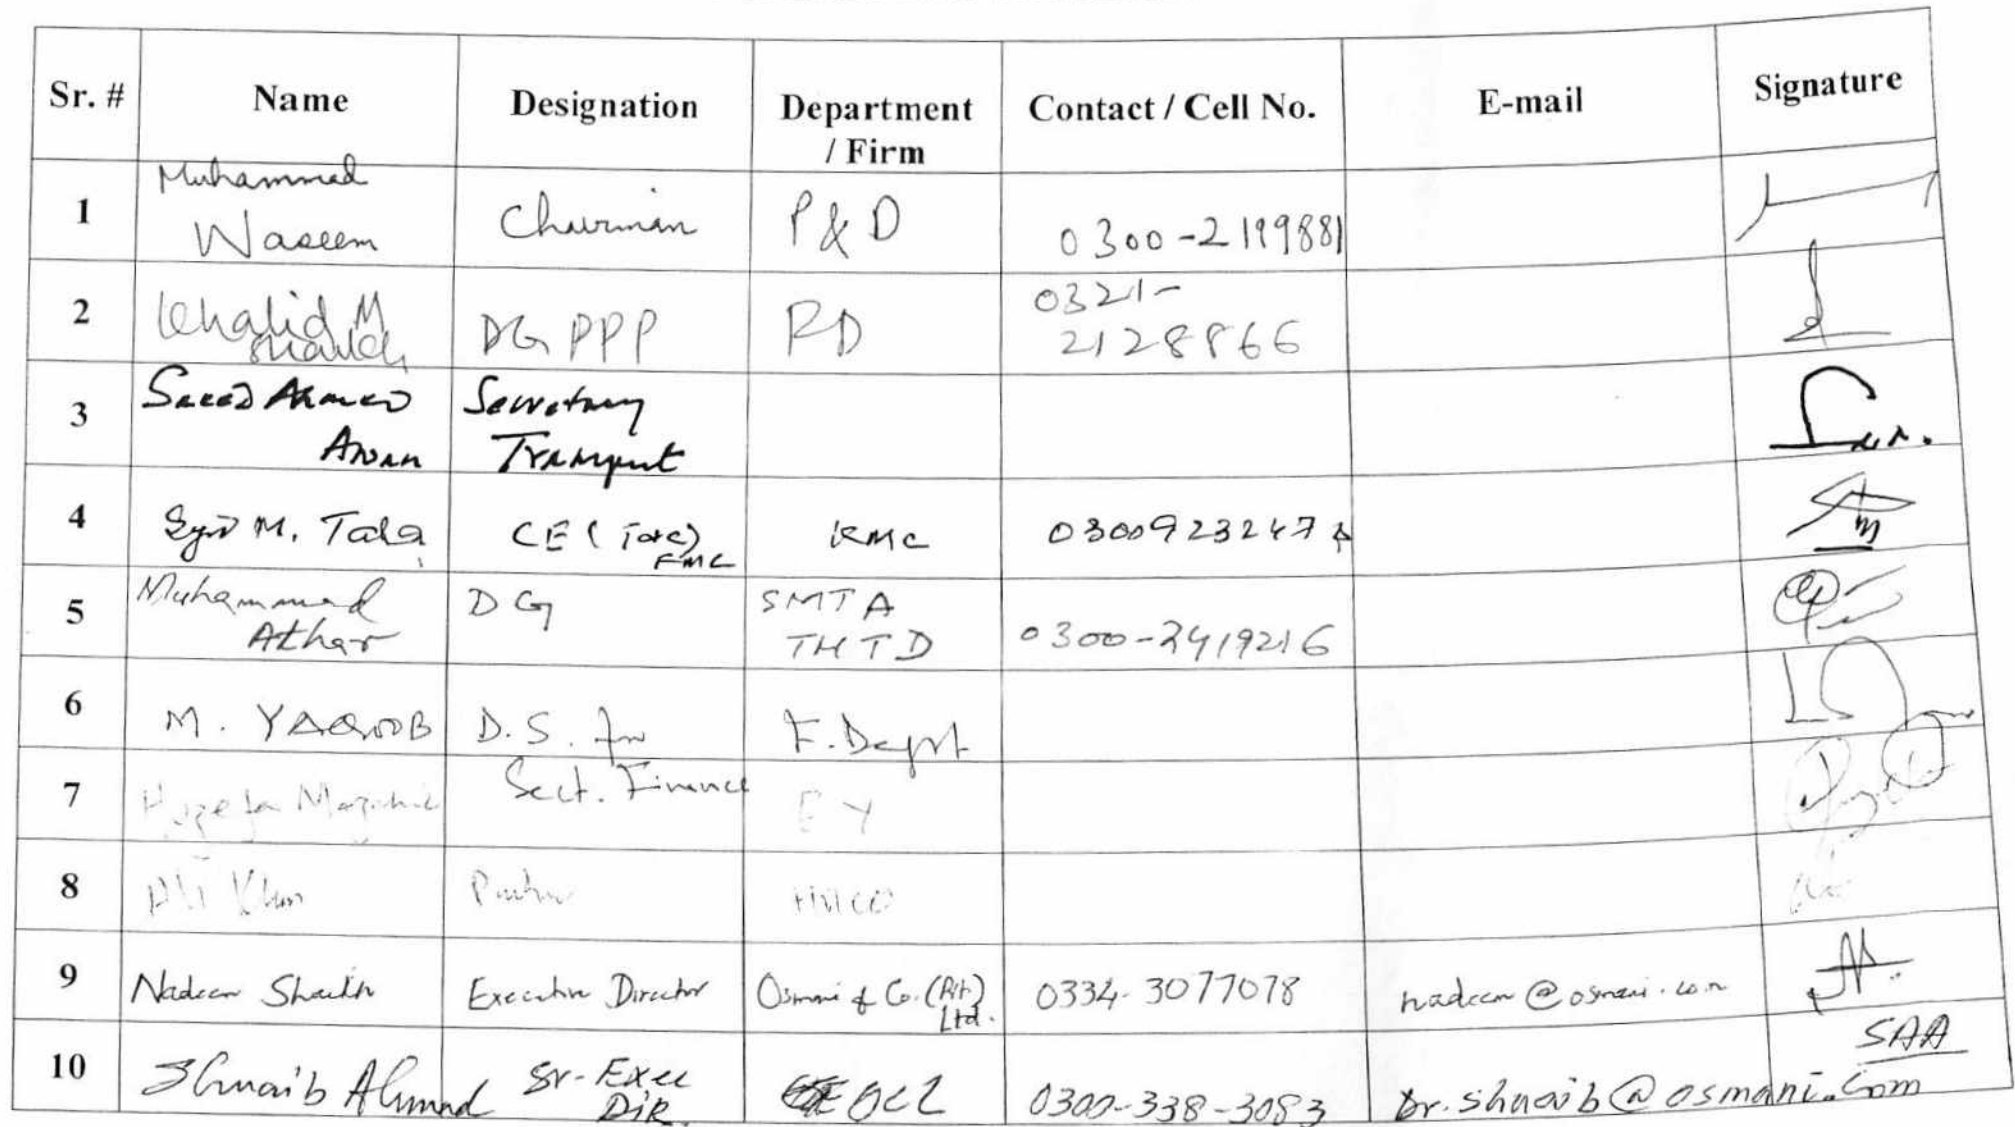 Sr. # Name Designation Department / Firm Contact / Cell No. E-mail Signature
1 Muhammad Waseem Chairman P&D 0300-2199881
2 Khalid M Shaikh DG PPP PD 0321-2128866
3 Saeed Ahmed Awan Secretary Transport
4 Syed M. Talha CE ( KMC KMC
5 Muhammad Athar DG SMTA THTD 0300-2419216
6 M. YAQOOB D.S. for Sect. Finance F. Deptt
7 Huzefa EY
8 Ali Khan
9 Nadeem Shaikh Executive Director Osmani & Co. (Pvt) Ltd. 0334-3077078 nadeem@osmani.com
10 Shuaib Ahmad Sr-Exec DIR. OCL 0300-338-3083 Dr.shuaib@osmani.com SAA